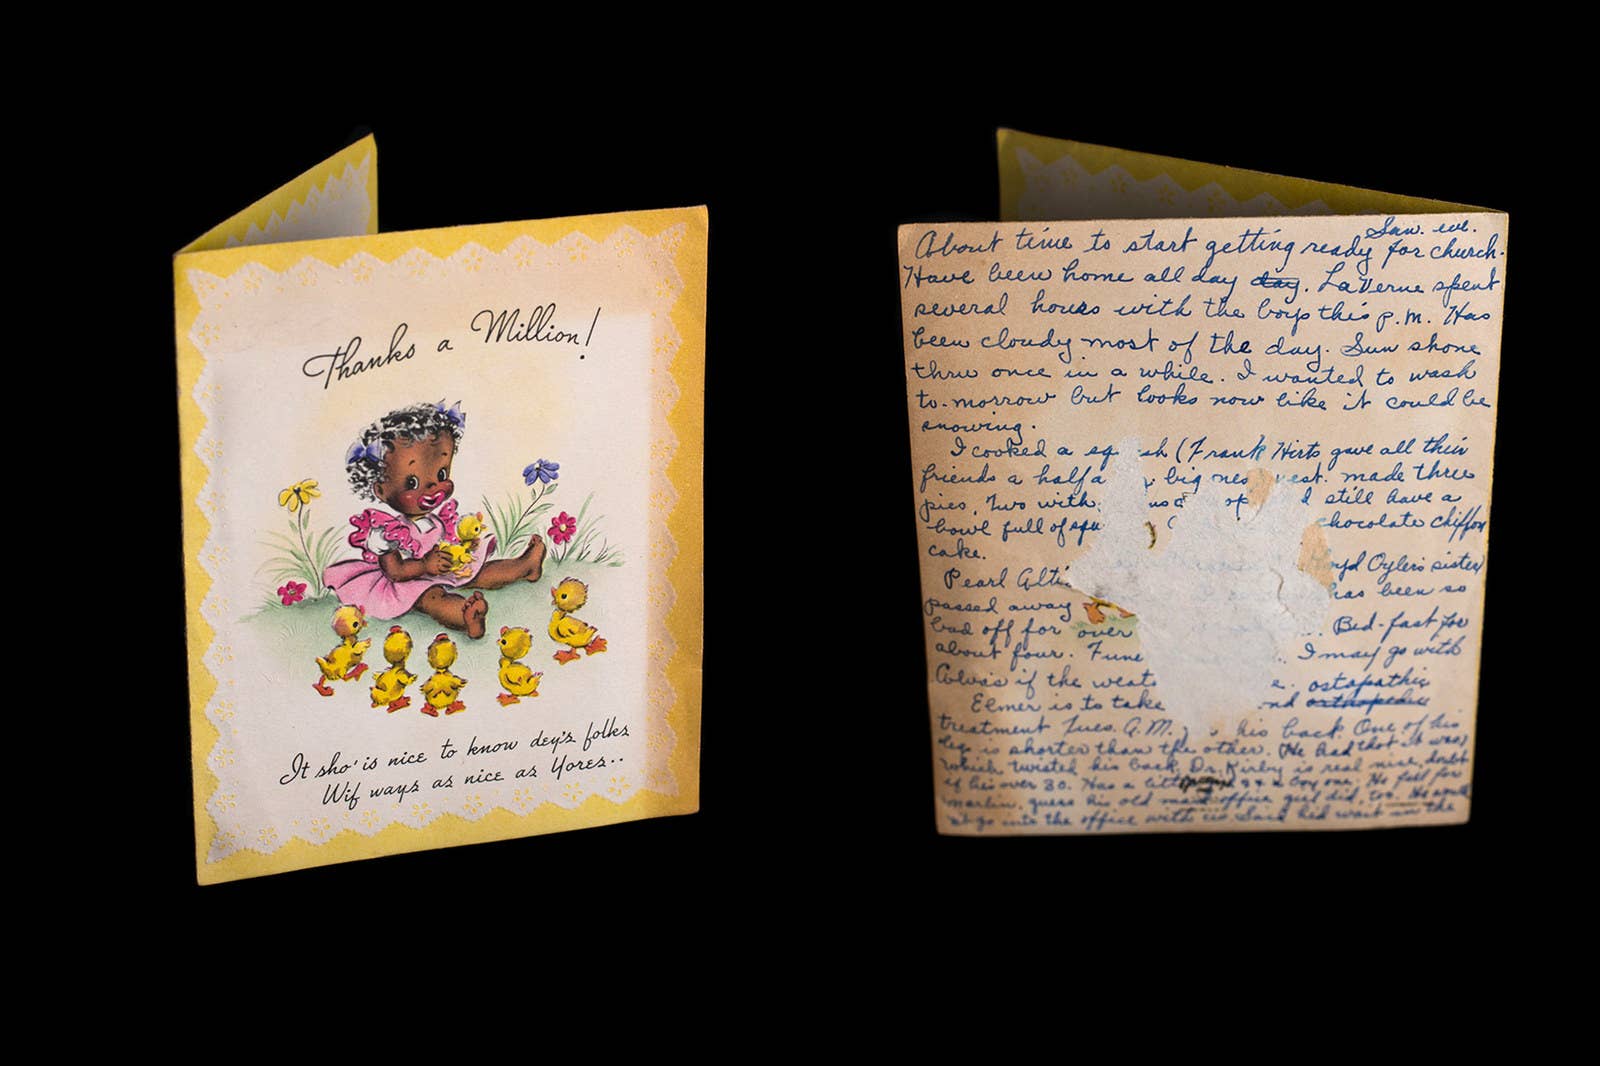 Thanks a Million!
It sho' is nice to know dey'z folks
Wif ways az nice az Yorez..
Sun. eve.
About time to start getting ready for church.
Have been home all day day. LaVerne spent
several hours with the boys this p.m. Has
been cloudy most of the day. Sun shone
thru once in a while. I wanted to wash
to-morrow but looks now like it could be
snowing.
I cooked a sq sh (Frank Hirts gave all their
friends a half a big nes vest. made three
pies, Two with still have a
bowl full of squ chocolate chiffon
cake.
Pearl Alti loyd Oyler's sister)
passed away has been so
bad off for over Bed-fast for
about four. Fune I may go with
Alva's if the weat e. ostapathic
Elmer is to take nd orthopedic
treatment Tues. A.M. his back. One of his
legs is shorter than the other. (He had that it was)
which twisted his back. Dr. Kirby is real nice, doubt
if he's over 30. Has a little & a boy one. He fell for
Marlin, guess his old office girl did, too. He
go into the office with us Said he'd wait in the